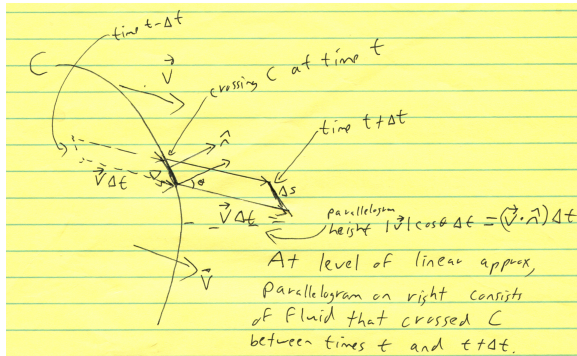 time t-Δt
C
V⃗
crossing C at time t
n̂
time t+Δt
V⃗Δt
θ
Δs
V⃗Δt
parallelogram
height |V⃗|cosθ Δt = (V⃗·n̂)Δt
V⃗
At level of linear approx,
parallelogram on right consists
of fluid that crossed C
between times t and t+Δt.